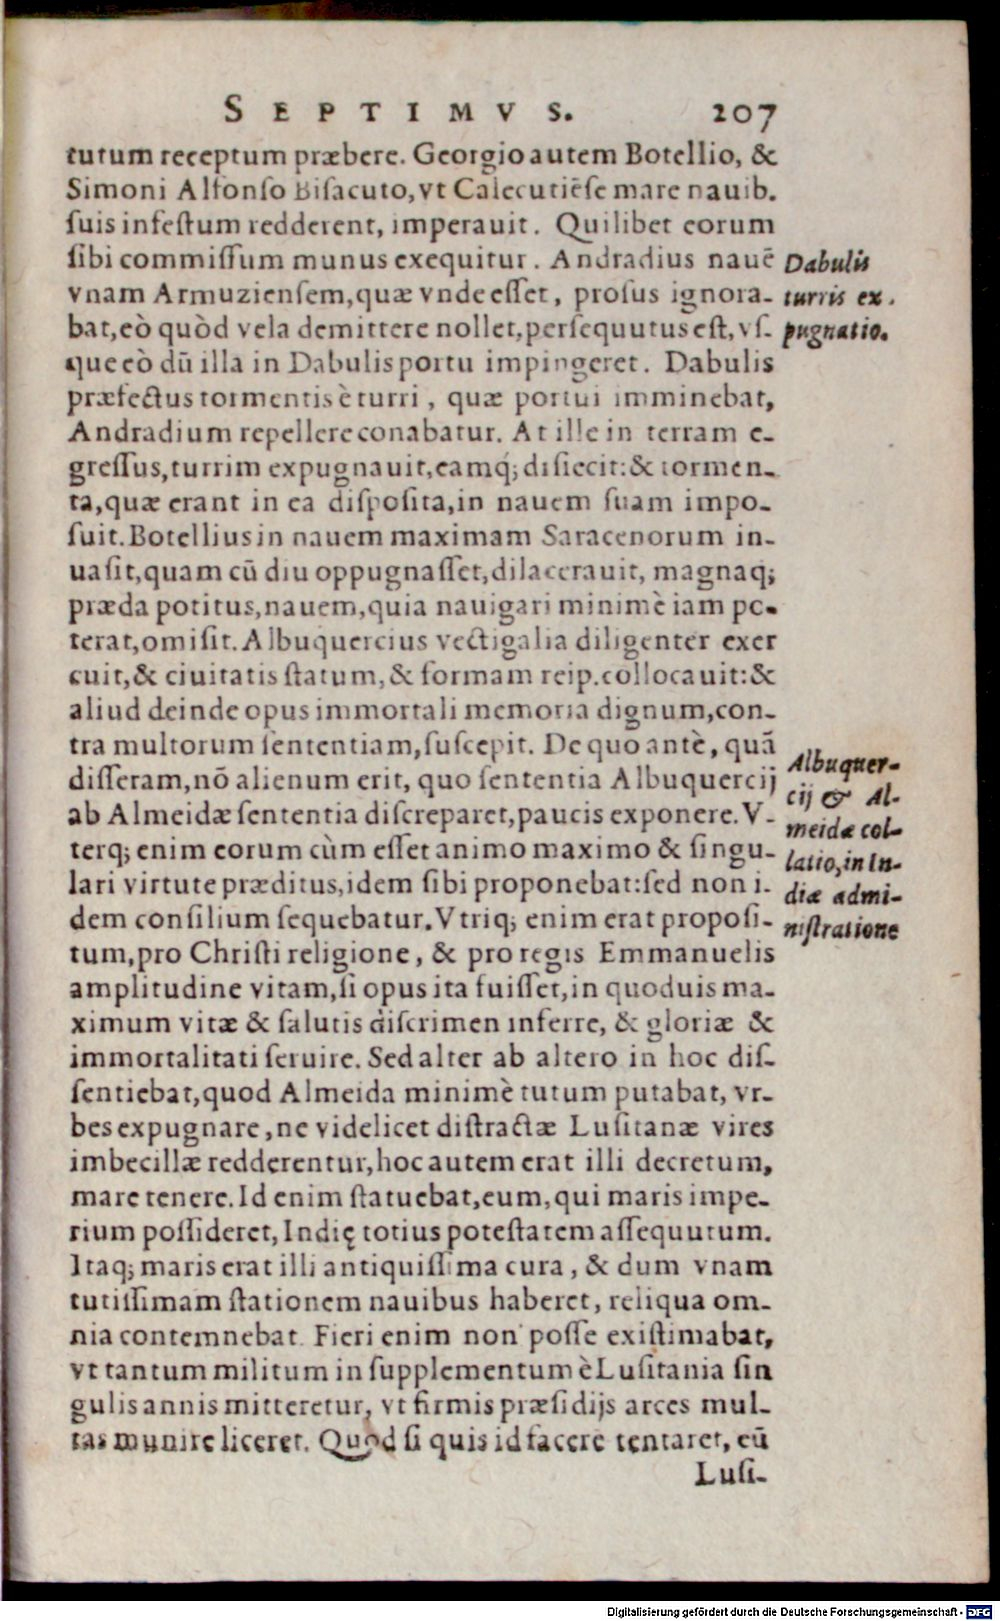 SEPTIMVS. 207
tutum receptum præbere. Georgio autem Botellio, &
Simoni Alfonso Bisacuto, vt Calecutiēse mare nauib.
suis infestum redderent, imperauit. Quilibet eorum
sibi commissum munus exequitur. Andradius nauē
vnam Armuziensem, quæ vnde esset, prosus ignora-
bat, eò quòd vela demittere nollet, persequutus est, vs-
que eò dū illa in Dabulis portu impingeret. Dabulis
præfectus tormentis è turri, quæ portui imminebat,
Andradium repellere conabatur. At ille in terram e-
gressus, turrim expugnauit, eamq́; disiecit: & tormen-
ta, quæ erant in ea disposita, in nauem suam impo-
suit. Botellius in nauem maximam Saracenorum in-
uasit, quam cū diu oppugnasset, dilacerauit, magnaq;
præda potitus, nauem, quia nauigari minimè iam po-
terat, omisit. Albuquercius vectigalia diligenter exer
cuit, & ciuitatis statum, & formam reip. collocauit: &
aliud deinde opus immortali memoria dignum, con-
tra multorum sententiam, suscepit. De quo antè, quā
disseram, nō alienum erit, quo sententia Albuquercij
ab Almeidæ sententia discreparet, paucis exponere. V-
terq; enim eorum cùm esset animo maximo & singu-
lari virtute præditus, idem sibi proponebat: sed non i-
dem consilium sequebatur. Vtriq; enim erat proposi-
tum, pro Christi religione, & pro regis Emmanuelis
amplitudine vitam, si opus ita fuisset, in quoduis ma-
ximum vitæ & salutis discrimen inferre, & gloriæ &
immortalitati seruire. Sed alter ab altero in hoc dis-
sentiebat, quod Almeida minimè tutum putabat, vr-
bes expugnare, ne videlicet distractæ Lusitanæ vires
imbecillæ redderentur, hoc autem erat illi decretum,
mare tenere. Id enim statuebat, eum, qui maris impe-
rium possideret, Indię totius potestatem assequutum.
Itaq; maris erat illi antiquissima cura, & dum vnam
tutissimam stationem nauibus haberet, reliqua om-
nia contemnebat. Fieri enim non posse existimabat,
vt tantum militum in supplementum è Lusitania sin
gulis annis mitteretur, vt firmis præsidijs arces mul-
tas munire liceret. Quod si quis id facere tentaret, eū
Lusi-
Dabulis
turris ex-
pugnatio.
Albuquer-
cij & Al-
meidæ col-
latio, in In-
diæ admi-
nistratione
Digitalisierung gefördert durch die Deutsche Forschungsgemeinschaft - DFG